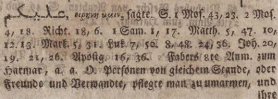 sagte. S. 1 Mos. 43, 23. 2 Mos.
4, 18. Richt. 18, 6. 1 Sam. 1, 17. Matth. 5, 47. 10,
12. 13. Mark. 5, 34. Luk. 7, 50. 8. 48. 24, 36. Joh. 20,
19, 21. 26. Apostg. 16, 36. Fabers 2te Anm. zum
Harmar, a. a. O. Personen von gleichem Stande, oder
Freunde und Verwandte, pflegte man zu umarmen, und
ihre